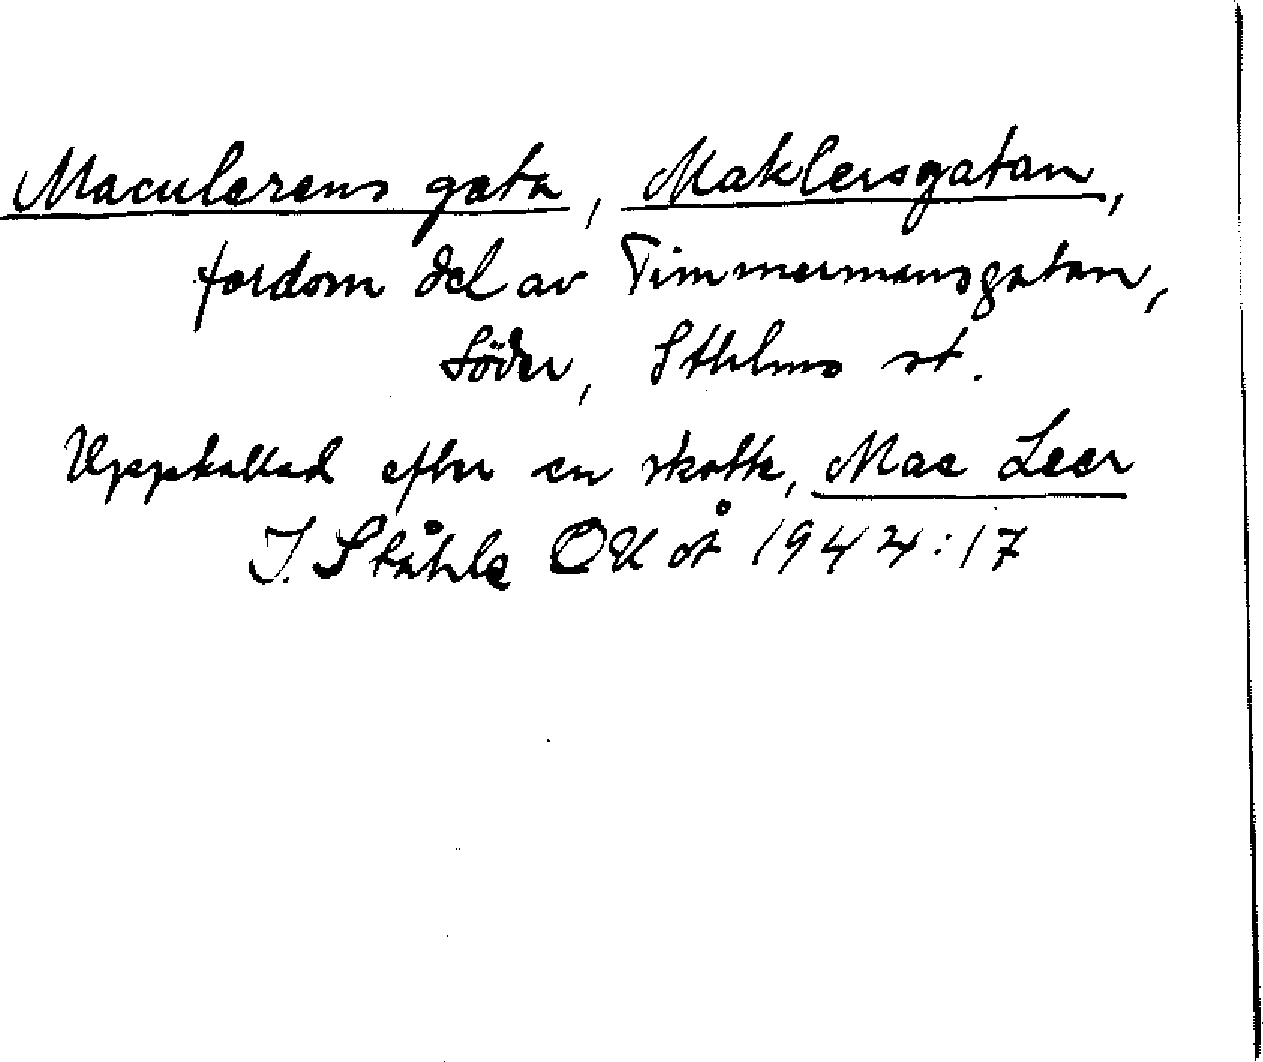 Maculerens gata, Maklersgatan,
fordom del av Timmermansgatan,
Söder, Sthlms st.
Uppkallad efter en skotte, Mac Leer
I. Ståhle OUÅ 1944:17